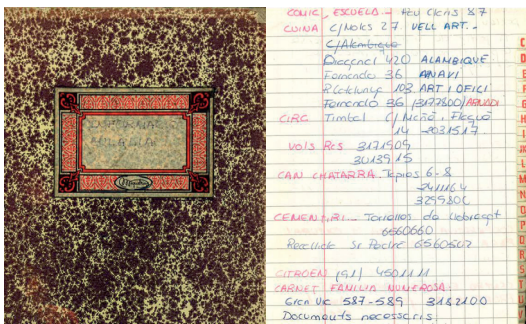 COMIC, ESCUELA - Pau Claris 87
CUINA C/Moles 27 VELL ART.-
C/Alambique
Diagonal 420 ALAMBIQUE
Fernando 36 AMADI
P. Catalunya 103 ART I OFICI
Fernando 36 (3177800) AMADI
CIRC Timbal C/
14 - 2031517
VOIS Rcs 3171909
3013915
CAN CHATARRA - Tapies 6-8
2411164
CEMENTIRI - Torrelles de Llobregat
6560660
Recollida Sr Padre 6560502
CITROEN (91) 4501111
CARNET FAMILIA NUMEROSA:
Gran Via 587-589 3182100
Documents necessaris.
C
D
F
G
H
I
JK
L
M
N
O
P
Q
R
S
T